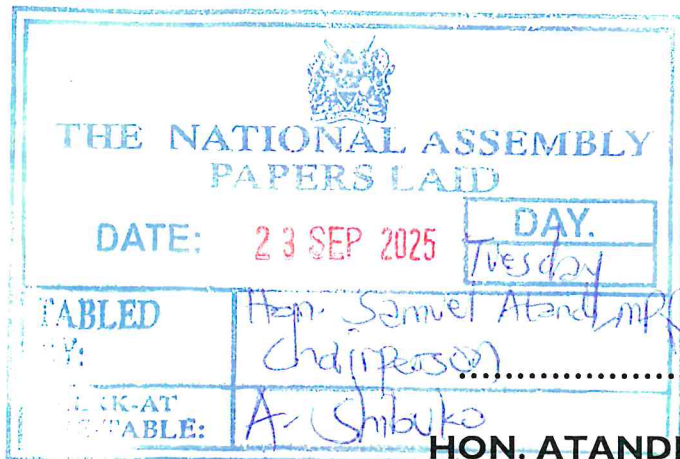 THE NATIONAL ASSEMBLY
PAPERS LAID
DATE: 23 SEP 2025
DAY.
Tuesday
TABLED
Hon. Samuel Atandi, MP
Chairperson
TABLE:
A. Shibuko
HON. ATANDI